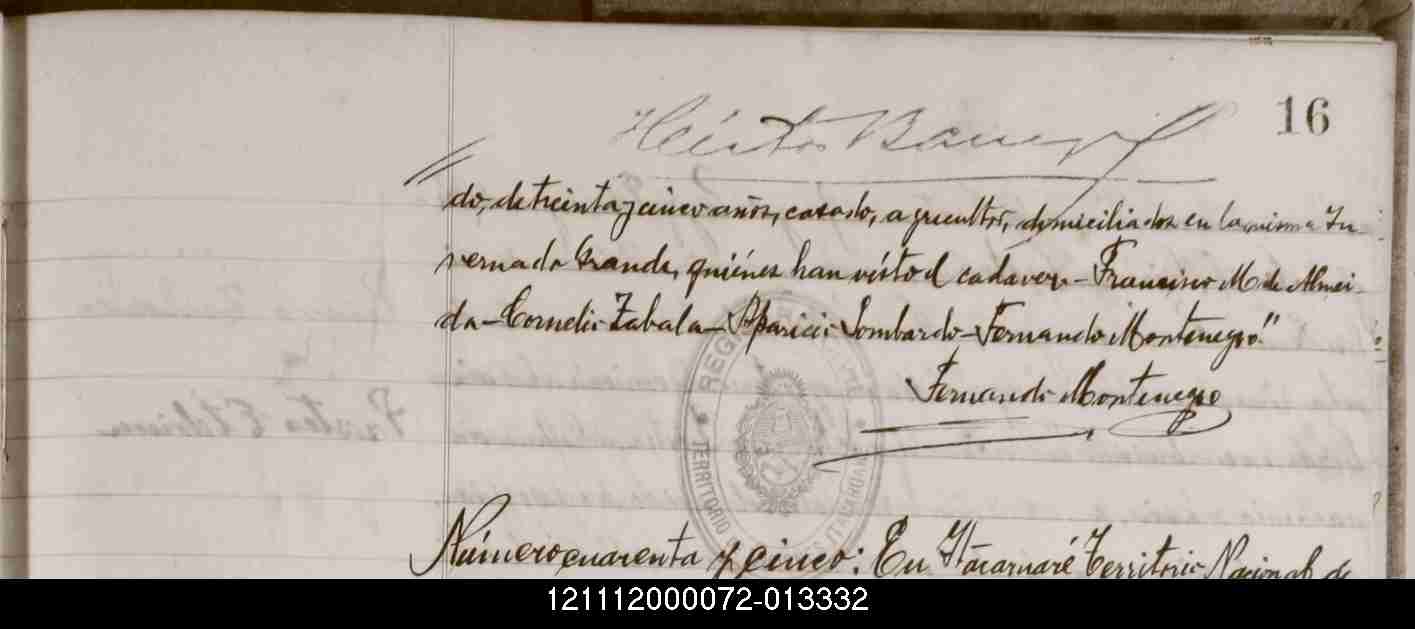 16
Héctor
do, de treinta y cinco años, casado, agricultor, domiciliados en la misma In-
vernada Grande, quiénes han visto el cadaver - Francisco M. de Almei-
da - Cornelio Zabala - Aparicio Lombardo - Fernando Montenegro."
Fernando Montenegro
REG
TERRITORIO
Número cuarenta y cinco: En Itacaruaré Territorio Nacional de
121112000072-013332